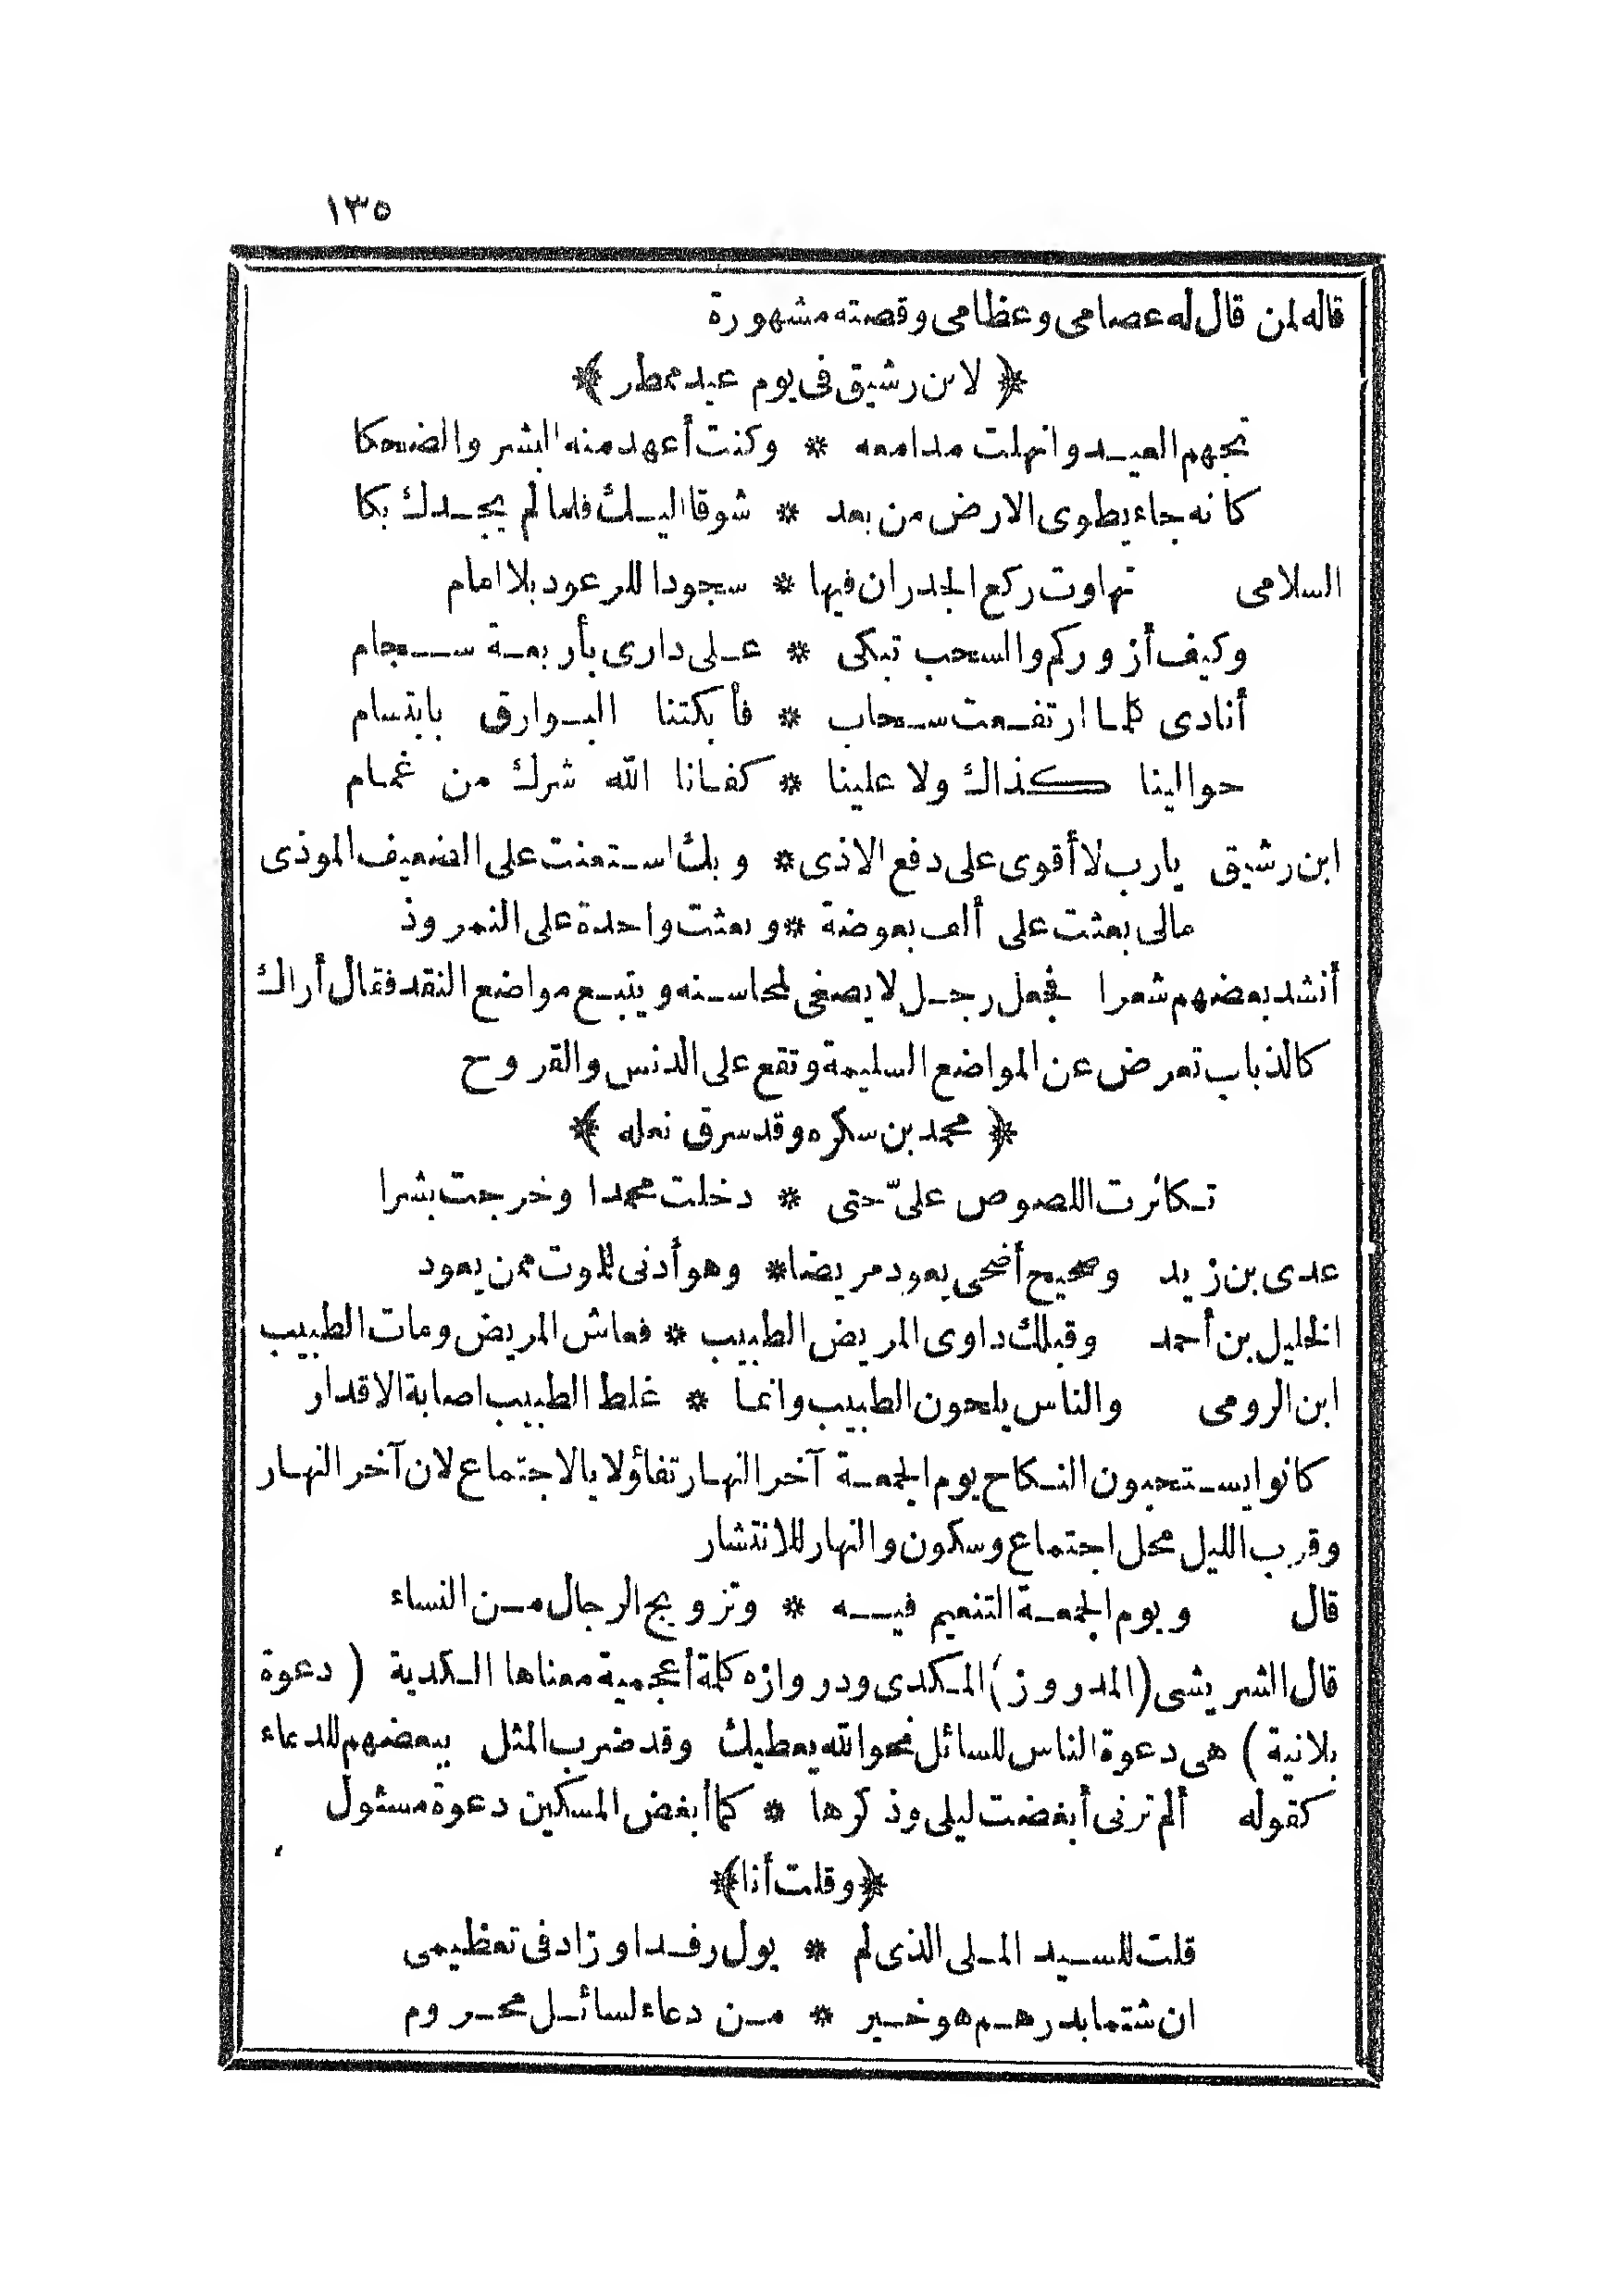 ١٣٥
قاله لمن قال له عصامى وعظامى وقصته مشهورة
﴿ لابن رشيق فى يوم عيد ممطر ﴾
تجهم العيد وانهلت مدامعه * وكنت أعهد منه البشر والضحكا
كانه جاء يطوى الارض من بعد * شوقا اليك فلما لم يجدك بكا
السلامى تهاوت ركع الجدران فيها * سجودا للرعود بلا امام
وكيف أزوركم والسحب تبكى * على دارى بأربعة سجام
أنادى كلما ارتفعت سحاب * فأبكتنا البوارق بابتسام
حوالينا كذاك ولا علينا * كفانا الله شرك من غمام
ابن رشيق يارب لا أقوى على دفع الاذى * وبك استعنت على الضعيف الموذى
مالى بعثت على ألف بعوضة * وبعثت واحدة على النمروذ
أنشد بعضهم شعرا فجعل رجل لا يصغى لمحاسنه ويتبع مواضع النقد فقال أراك
كالذباب تعرض عن المواضع السليمة وتقع على الدنس والقروح
﴿ محمد بن سكره وقد سرق نعله ﴾
تكاثرت اللصوص علىّ حتى * دخلت محمدا وخرجت بشرا
عدى بن زيد وصحيح أضحى يعود مريضا * وهو أدنى للموت ممن يعود
الخليل بن أحمد وقبلك داوى المريض الطبيب * فعاش المريض ومات الطبيب
ابن الرومى والناس يلحون الطبيب وانما * غلط الطبيب اصابة الاقدار
كانوا يستحبون النكاح يوم الجمعة آخر النهار تفاؤلا بالاجتماع لان آخر النهار
وقرب الليل محل اجتماع وسكون والنهار للانتشار
قال ويوم الجمعة التنعيم فيه * وتزويج الرجال من النساء
قال الشريشى (المدروز) المكدى ودروازه كلمة أعجمية معناها الكدية ( دعوة
بلانية ) هى دعوة الناس للسائل نحو الله يعطيك وقد ضرب المثل ببعضهم للدعاء
كقوله ألم ترنى أبغضت ليلى وذكرها * كما أبغض المسكين دعوة مسئول
﴿ وقلت أنا ﴾
قلت للسيد الملى الذى لم * يول رفدا وزاد فى تعظيمى
ان شتما بدرهم هو خير * من دعاء لسائل محروم